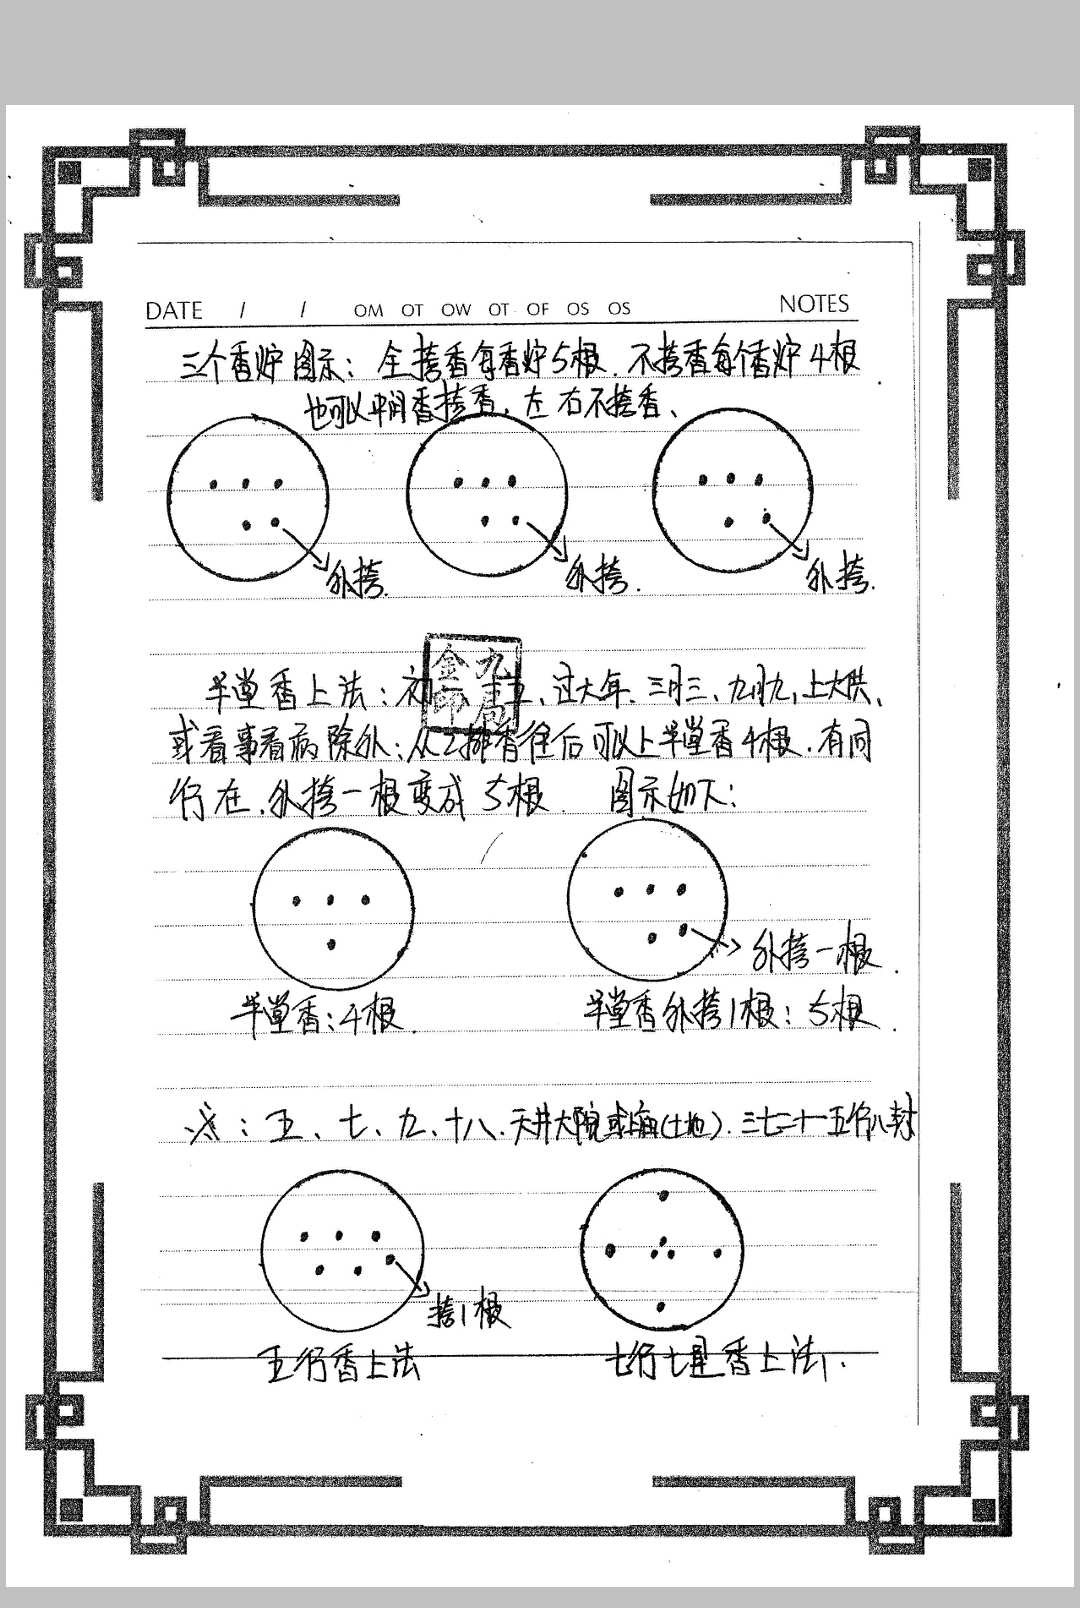 DATE / / OM OT OW OT OF OS OS NOTES
三个香炉图示：全挎香每香炉5根．不挎香每个香炉4根
也可以中间香挎香，左右不挎香、
外挎． 外挎． 外挎．
金九
印局
半堂香上法：初 五、过大年、三月三、九月九，上大供、
或看事看病除外；从2排香往后可以上半堂香4根．有同
行在，外挎一根变成5根． 图示如下：
外挎一根．
半堂香：4根． 半堂香外挎1根：5根．
：五、七、九、十八、天井大院或庙(土地)．三七二十一五行八封
挎1根
五行香上法 七行七星香上法．